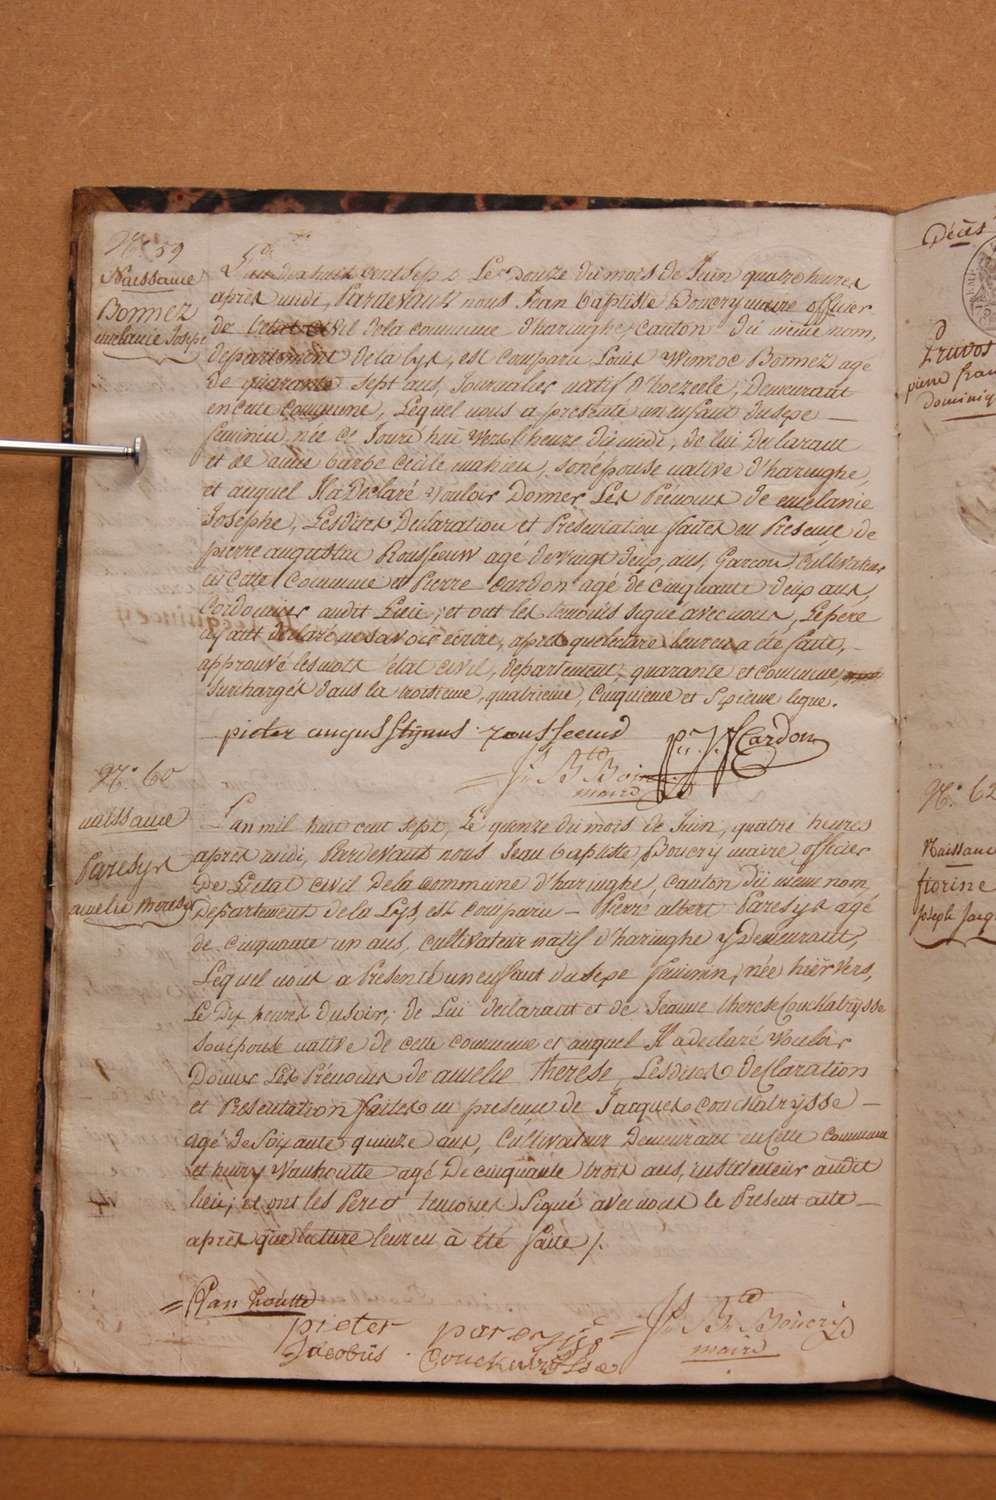 N.o 59
Naissance
Bonnez
melanie Josephe
L'an dix huit cent sept Le douze du mois de Juin quatre heures
après midi, Pardevant nous Jean baptiste Boucry maire officier
de l'etat civil de la commune d'haringhe, canton du même nom,
departement de la Lys, est comparu Louis Winnoc Bonnez agé
de quarante sept ans, Journalier natif d'hoezeele, Demeurant
en cette commune, Lequel nous a presenté un enfant du sexe
feminin, née ce Jourd'hui vers l'heure du midi, de lui declarant
et de anne barbe Cecile mahieu, son épouse native d'haringhe,
et auquel Il a Declaré Vouloir Donner Les Prénoms de melanie
Josephe, Lesdites Declaration et Presentation faites en Presence de
pierre augustin Rousseeuw agé de vingt deux ans, Garçon Cultivateur
en cette Commune et Pierre Cardon agé de cinquante deux ans,
Cordonnier audit Lieu; et ont les temoins signé avec nous, Le pere
ayant declaré ne savoir écrire, après que lecture leur en a été faite,
approuvé les mots état civil, departement, quarante et commune,
surchargés dans la troisieme, quatrieme, cinquieme et sixieme ligne.
pieter augusstynus rousseeuw
P. J. Cardon
J. Bte Boucry
maire
N.o 60
naissance
Paresys
amelie therese
L'an mil huit cent sept, Le quinze du mois de Juin, quatre heures
après midi, Pardevant nous Jean baptiste Boucry maire officier
De L'etat civil De la commune d'haringhe, canton du même nom,
Departement de la Lys, est comparu Pierre albert Paresys agé
de cinquante un ans, cultivateur natif d'haringhe y Demeurant,
Lequel nous a Présenté un enfant du sexe feminin, née hier vers
Le Dix heures du soir, de Lui declarant et de Jeanne therese Couchatrysse
son épouse native de cette commune et auquel Il a declaré Vouloir
Donner Les Prénoms de amelie Therese, Lesdites declaration
et Presentation faites en presence de Jacques couchatrysse
agé de Soixante quinze ans, Cultivateur Demeurant en cette commune
et henry Vanhoutte agé De cinquante trois ans, instituteur audit
lieu; et ont les Pere et temoins Signé avec nous le Present acte
après que lecture leur en à été faite /.
Van houtte
pieter paresijs
Jacobüs
J. Bte Boucry
maire
Décès
D
Truvos
pierre fran
dominiq
N.o 62
Naissanc
fiorine
Joseph Jacq